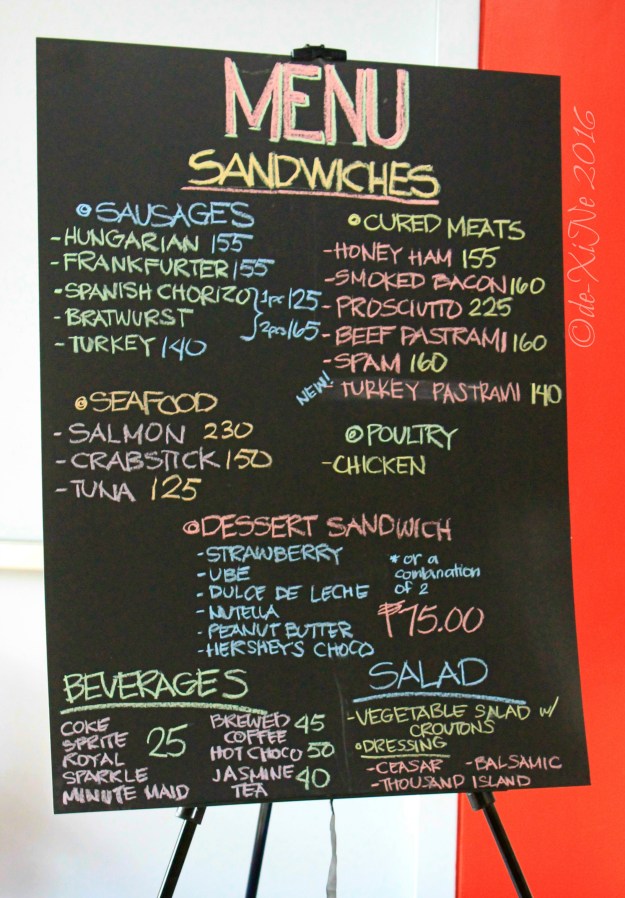 MENU
SANDWICHES
SAUSAGES
-HUNGARIAN 155
-FRANKFURTER 155
-SPANISH CHORIZO 1pc 125
-BRATWURST 2pcs 165
-TURKEY 140
CURED MEATS
-HONEY HAM 155
-SMOKED BACON 160
-PROSCIUTTO 225
-BEEF PASTRAMI 160
-SPAM 160
NEW! TURKEY PASTRAMI 140
SEAFOOD
-SALMON 230
-CRABSTICK 150
-TUNA 125
POULTRY
-CHICKEN
DESSERT SANDWICH
-STRAWBERRY
-UBE
-DULCE DE LECHE
-NUTELLA
-PEANUT BUTTER
-HERSHEY'S CHOCO
*or a
combanation
of 2
₱75.00
BEVERAGES
COKE
SPRITE 25
ROYAL
SPARKLE
MINUTE MAID
BREWED 45
COFFEE
HOT CHOCO 50
JASMINE 40
TEA
SALAD
-VEGETABLE SALAD w/
CROUTONS
DRESSING
-CEASAR -BALSAMIC
-THOUSAND ISLAND
©de-XiNe 2016